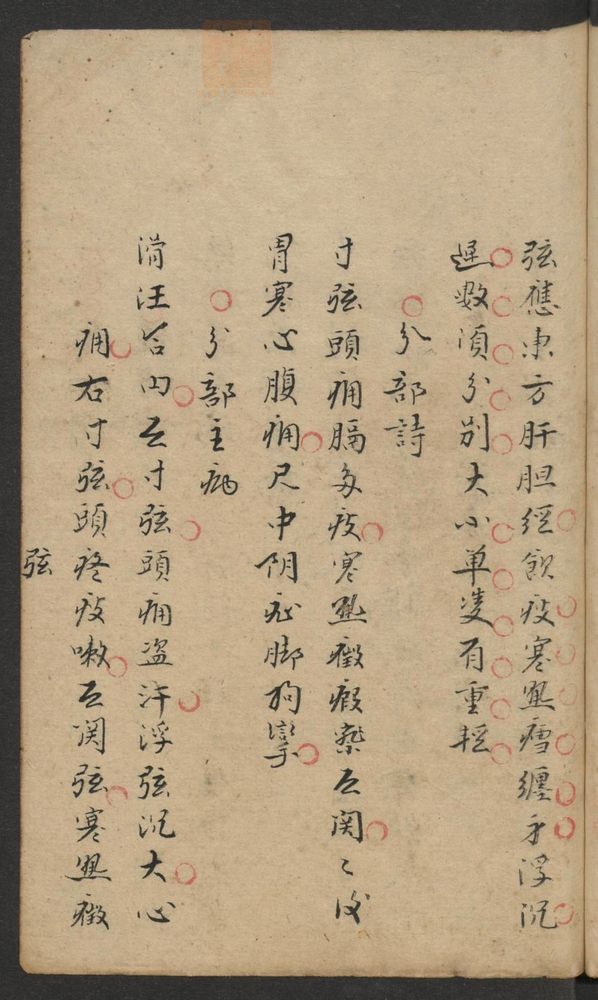 弦應東方肝胆經飲痰寒熱瘧纏身浮沉
遲数須分別大小单雙有重輕
分部詩
寸弦頭痛膈多痰寒熱癥瘕察左関〻右
胃寒心腹痛尺中阴疝脚拘攣
分部主病
滑汪台曰左寸弦頭痛盗汗浮弦沉大心
痛右寸弦頭疼痰嗽左関弦寒熱癥
弦